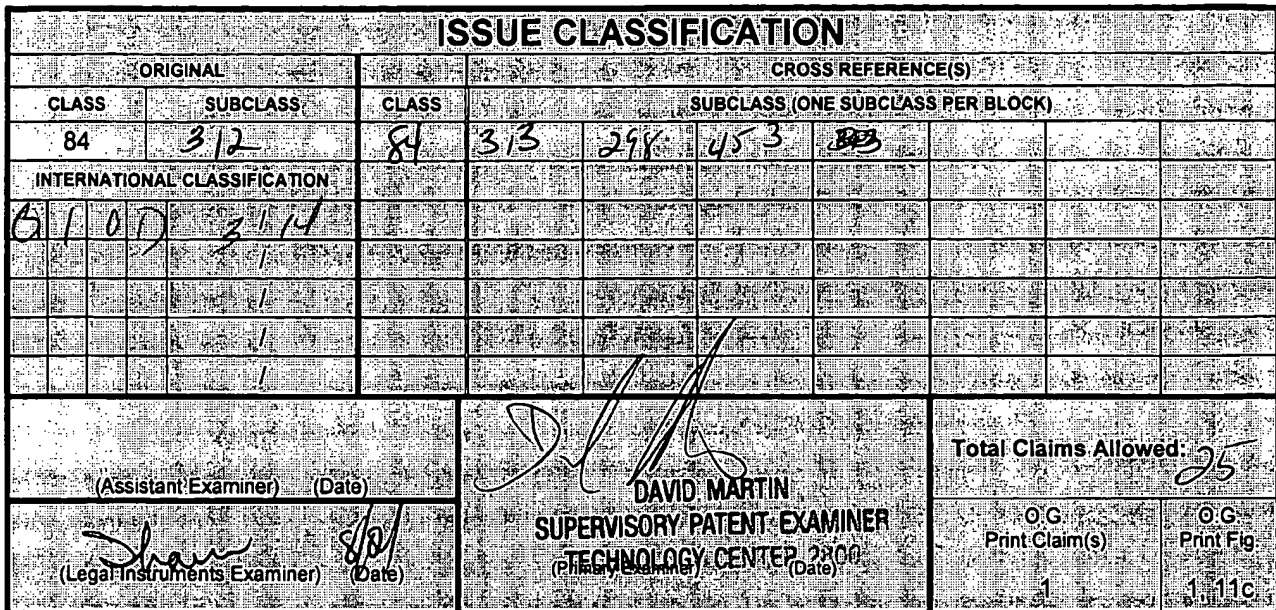 ISSUE CLASSIFICATION
ORIGINAL CROSS REFERENCE(S)
CLASS SUBCLASS CLASS SUBCLASS (ONE SUBCLASS PER BLOCK)
84 312 84 313 298 453
INTERNATIONAL CLASSIFICATION
G 1 0 D 3 / 14
/
/
/
/
(Assistant Examiner) (Date)
DAVID MARTIN
SUPERVISORY PATENT EXAMINER
TECHNOLOGY CENTER 2800
(Primary Examiner) (Date)
Total Claims Allowed: 25
(Legal Instruments Examiner) (Date)
O.G. Print Claim(s)
1
O.G. Print Fig
1, 11c